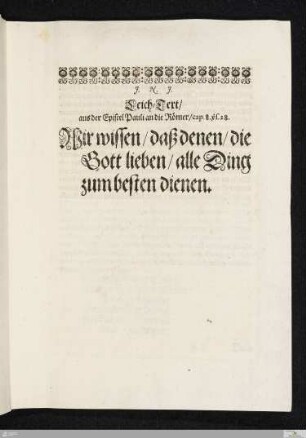 J. N. J.
Leich-Text/
aus der Epistel Pauli an die Römer/ cap. 8. ỳſ. 28.
Wir wissen/ daß denen/ die
Gott lieben/ alle Ding
zum besten dienen.